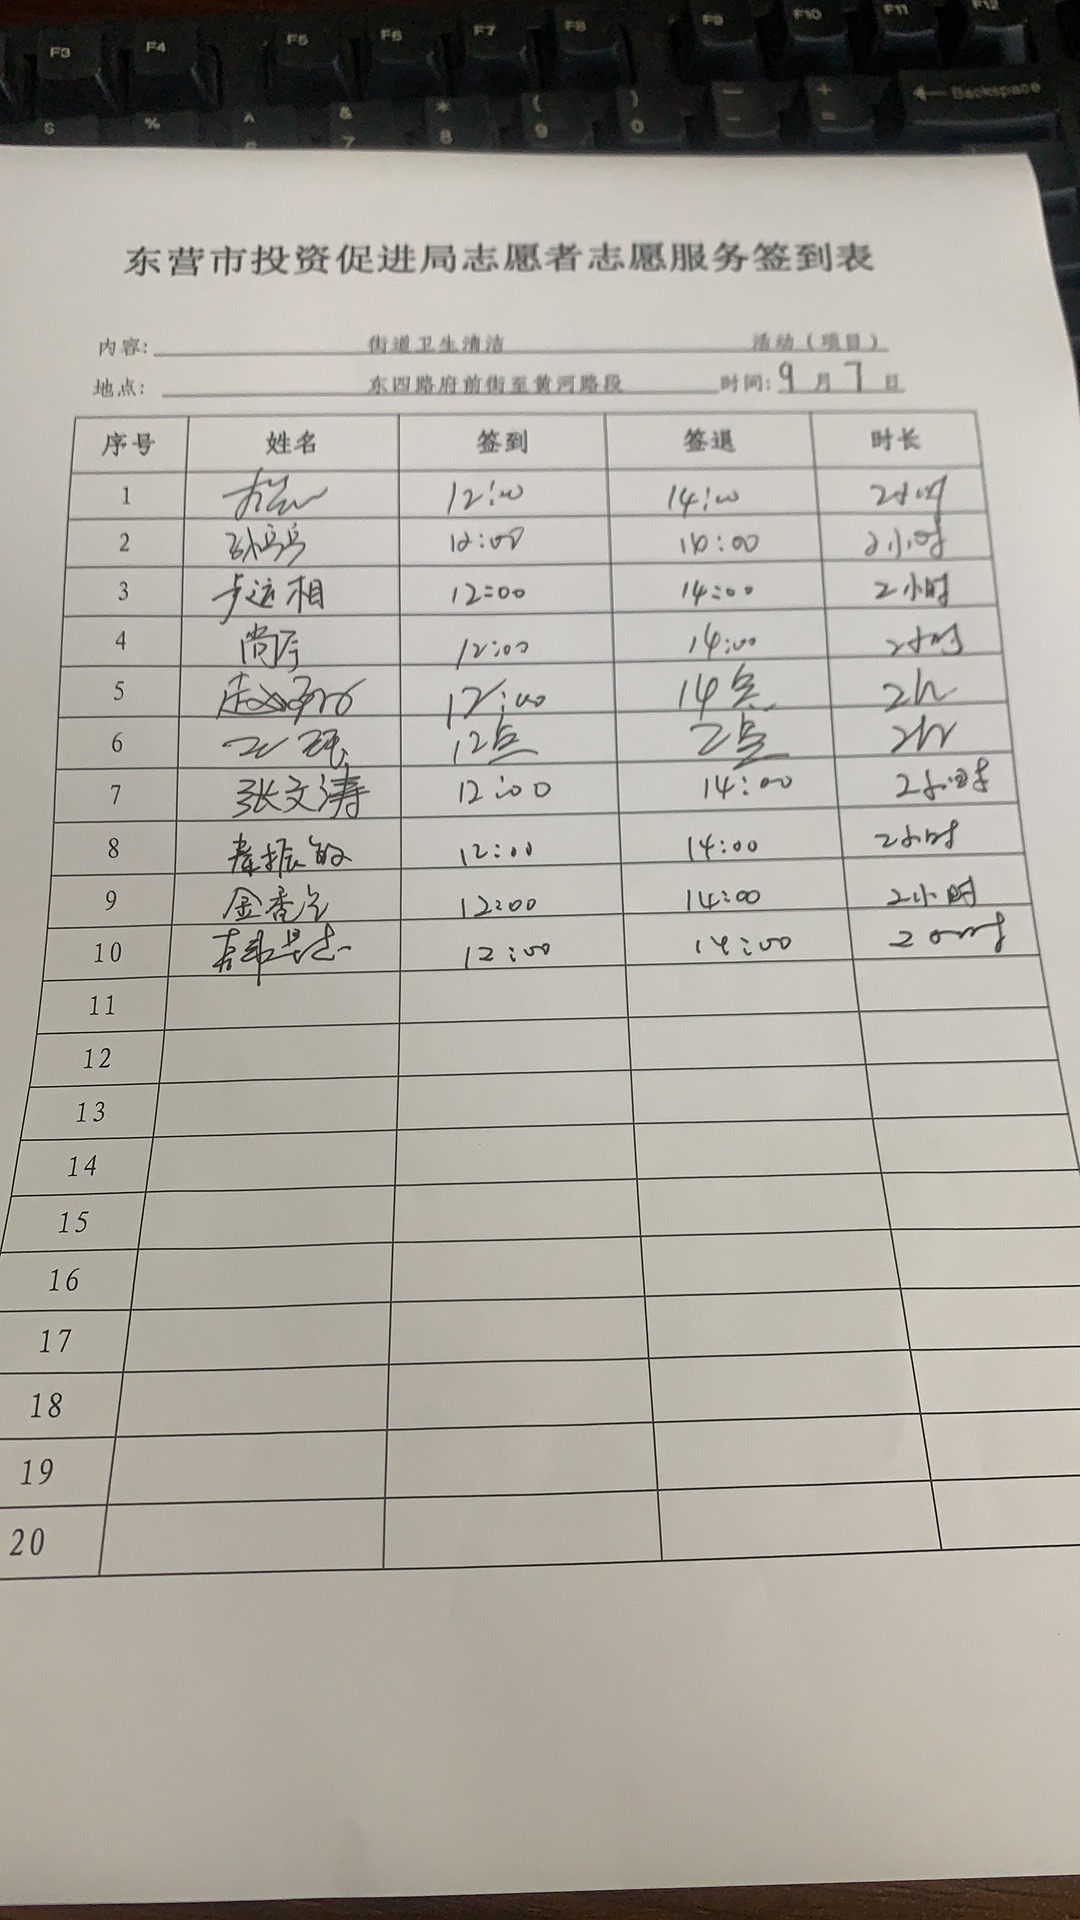 F3 F4 F5 F6 F7 F8 F9 F10 F11 F12
$ % ^ & 7 * 8 ( 9 ) 0 — - + = Backspace
东营市投资促进局志愿者志愿服务签到表
内容: 街道卫生清洁 活动(项目)
地点: 东四路府前街至黄河路段 时间: 9 月 7 日
序号 姓名 签到 签退 时长
1 12:00 14:00 2小时
2 12:00 14:00 2小时
3 卞运相 12:00 14:00 2小时
4 12:00 14:00 2小时
5 12:00 14点 2h
6 12点 2点 2h
7 张文涛 12:00 14:00 2小时
8 12:00 14:00 2小时
9 12:00 14:00 2小时
10 12:00 14:00 2小时
11
12
13
14
15
16
17
18
19
20